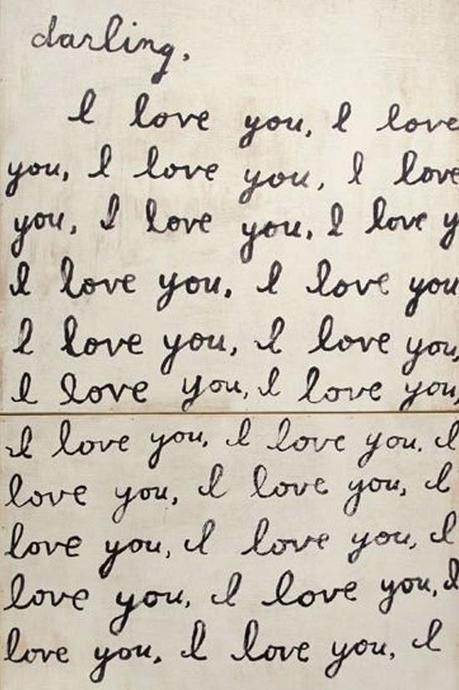 darling,
I love you, I love
you, I love you, I love
you, I love you, I love y
I love you, I love you
I love you, I love you,
I love you, I love you,
I love you, I love you. I
love you, I love you, I
love you, I love you, I
love you, I love you, I
love you, I love you, I